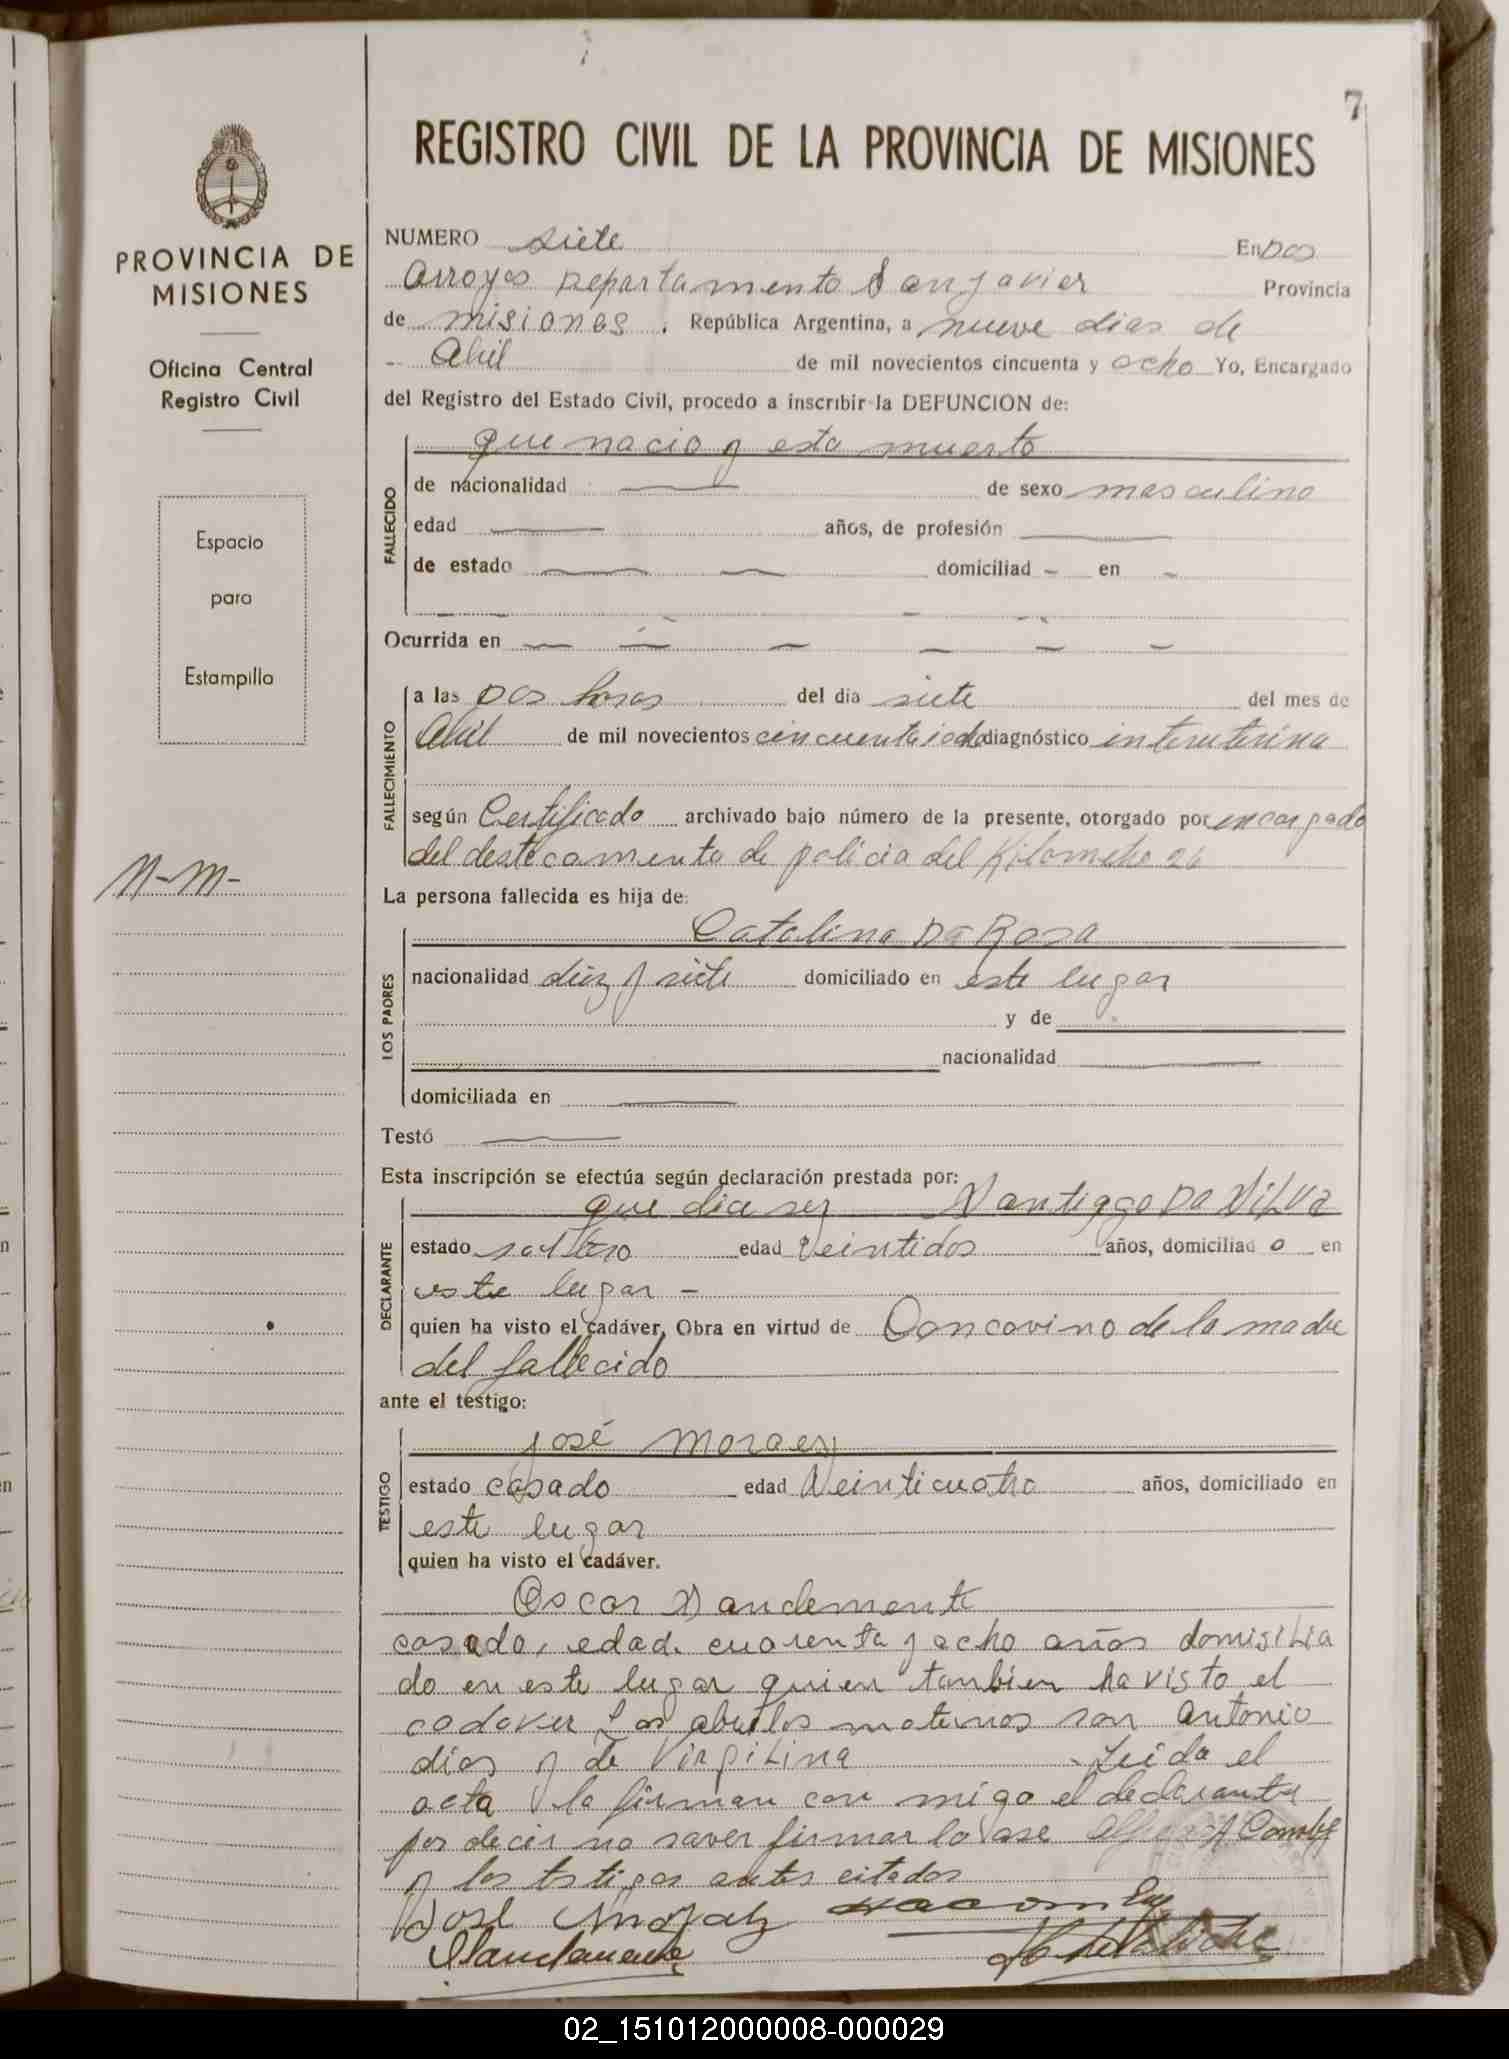 7
REGISTRO CIVIL DE LA PROVINCIA DE MISIONES
PROVINCIA DE
MISIONES
Oficina Central
Registro Civil
Espacio
para
Estampilla
N-M-
NUMERO siete En Dos
Arroyos Departamento San Javier Provincia
de misiones. República Argentina, a nueve dias de
Abril de mil novecientos cincuenta y ocho Yo, Encargado
del Registro del Estado Civil, procedo a inscribir la DEFUNCION de:
FALLECIDO
que nacio y esta muerto
de nacionalidad — de sexo masculino
edad — años, de profesión —
de estado — — domiciliad - en -
Ocurrida en — — — — — —
FALLECIMIENTO
a las Dos horas del día siete del mes de
Abril de mil novecientos cincuenta i ocho diagnóstico interuterina
según Certificado archivado bajo número de la presente, otorgado por encargado
del destecamento de policia del Kilometro 26
La persona fallecida es hija de:
LOS PADRES
Catalina Da Rosa
nacionalidad diez y siete domiciliado en este lugar
y de
nacionalidad —
domiciliada en —
Testó —
Esta inscripción se efectúa según declaración prestada por:
DECLARANTE
que dice ser Santiago Da Silva
estado soltero edad Veintidos años, domiciliad o en
este lugar -
quien ha visto el cadáver, Obra en virtud de Concovino de la madre
del fallecido
ante el testigo:
TESTIGO
José Moraes
estado casado edad Veinticuatro años, domiciliado en
este lugar
quien ha visto el cadáver.
Oscar Sandemente
casado, edad cuarenta y ocho años domisilia
do en este lugar quien tambien ha visto el
cadaver Los abuelos maternos son Antonio
dias y de Virgilina - Leida el
acta la firman con migo el declarante
por decir no saver firmar lo ase
y los testigos antes citados
José